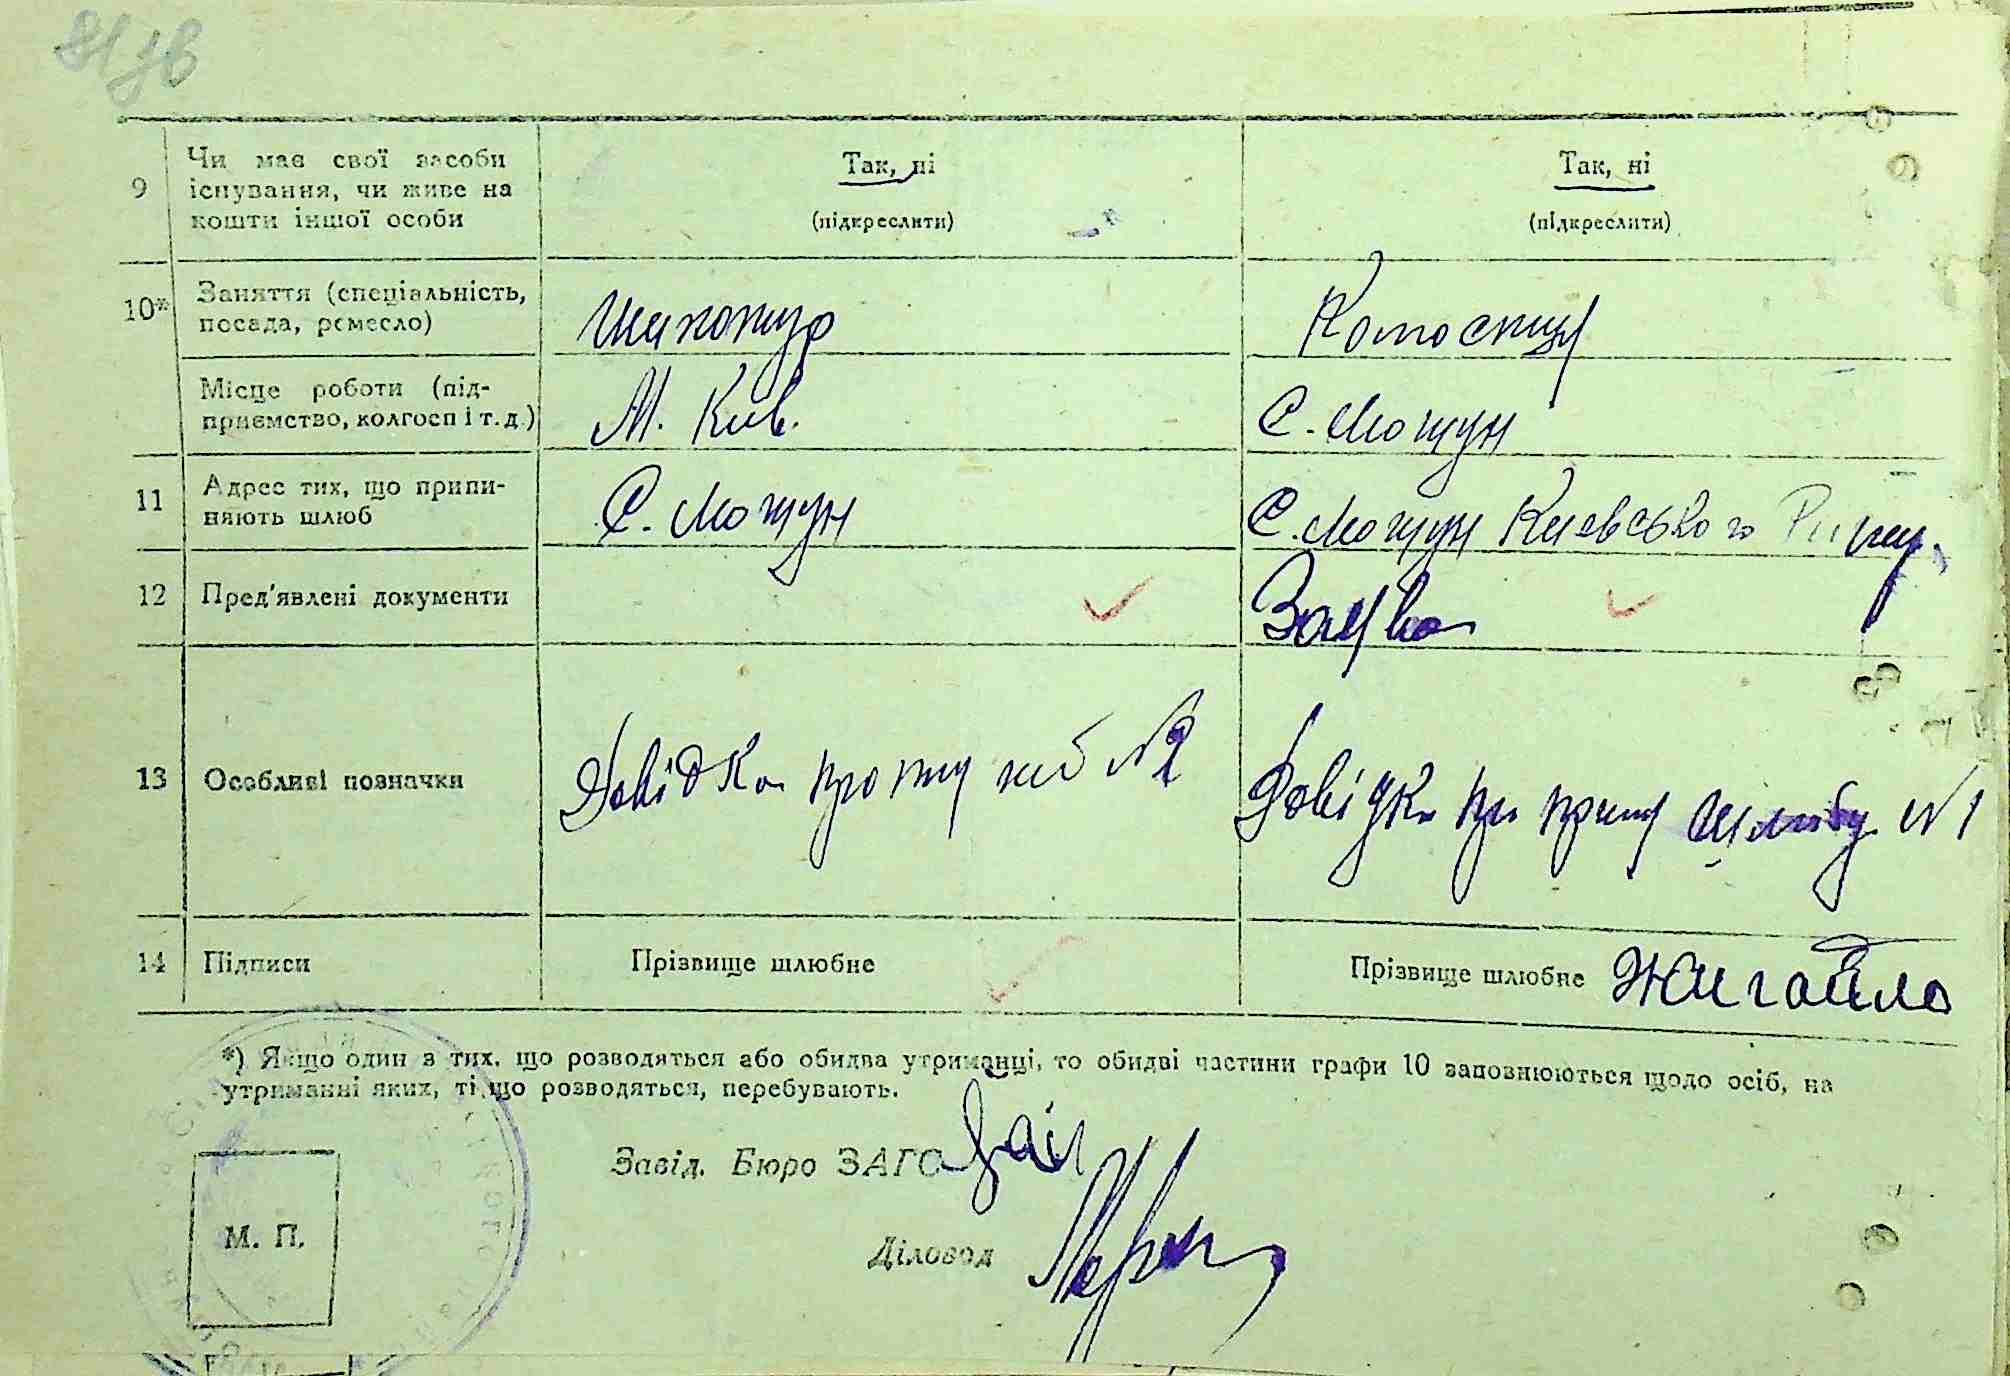 81 зв
9 Чи має свої засоби існування, чи живе на кошти іншої особи
Так, ні
(підкреслити)
Так, ні
(підкреслити)
10* Заняття (спеціальність, посада, ремесло)
Місце роботи (підприємство, колгосп і т. д.)
М. Київ.
С. Мощун
11 Адрес тих, що припиняють шлюб
С. Мощун
С. Мощун Киевського
12 Пред'явлені документи
Заява
13 Особливі позначки
Довідка про №2
Довідка про прип шлюбу №1
14 Підписи
Прізвище шлюбне
Прізвище шлюбне Жигайло
*) Якщо один з тих, що розводяться або обидва утриманці, то обидві частини графи 10 заповнюються щодо осіб, на
утриманні яких, ті що розводяться, перебувають.
Завід. Бюро ЗАГС
М. П.
Діловод